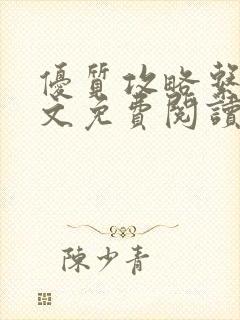 優質攻略繫
文免費閱讀
陳少青